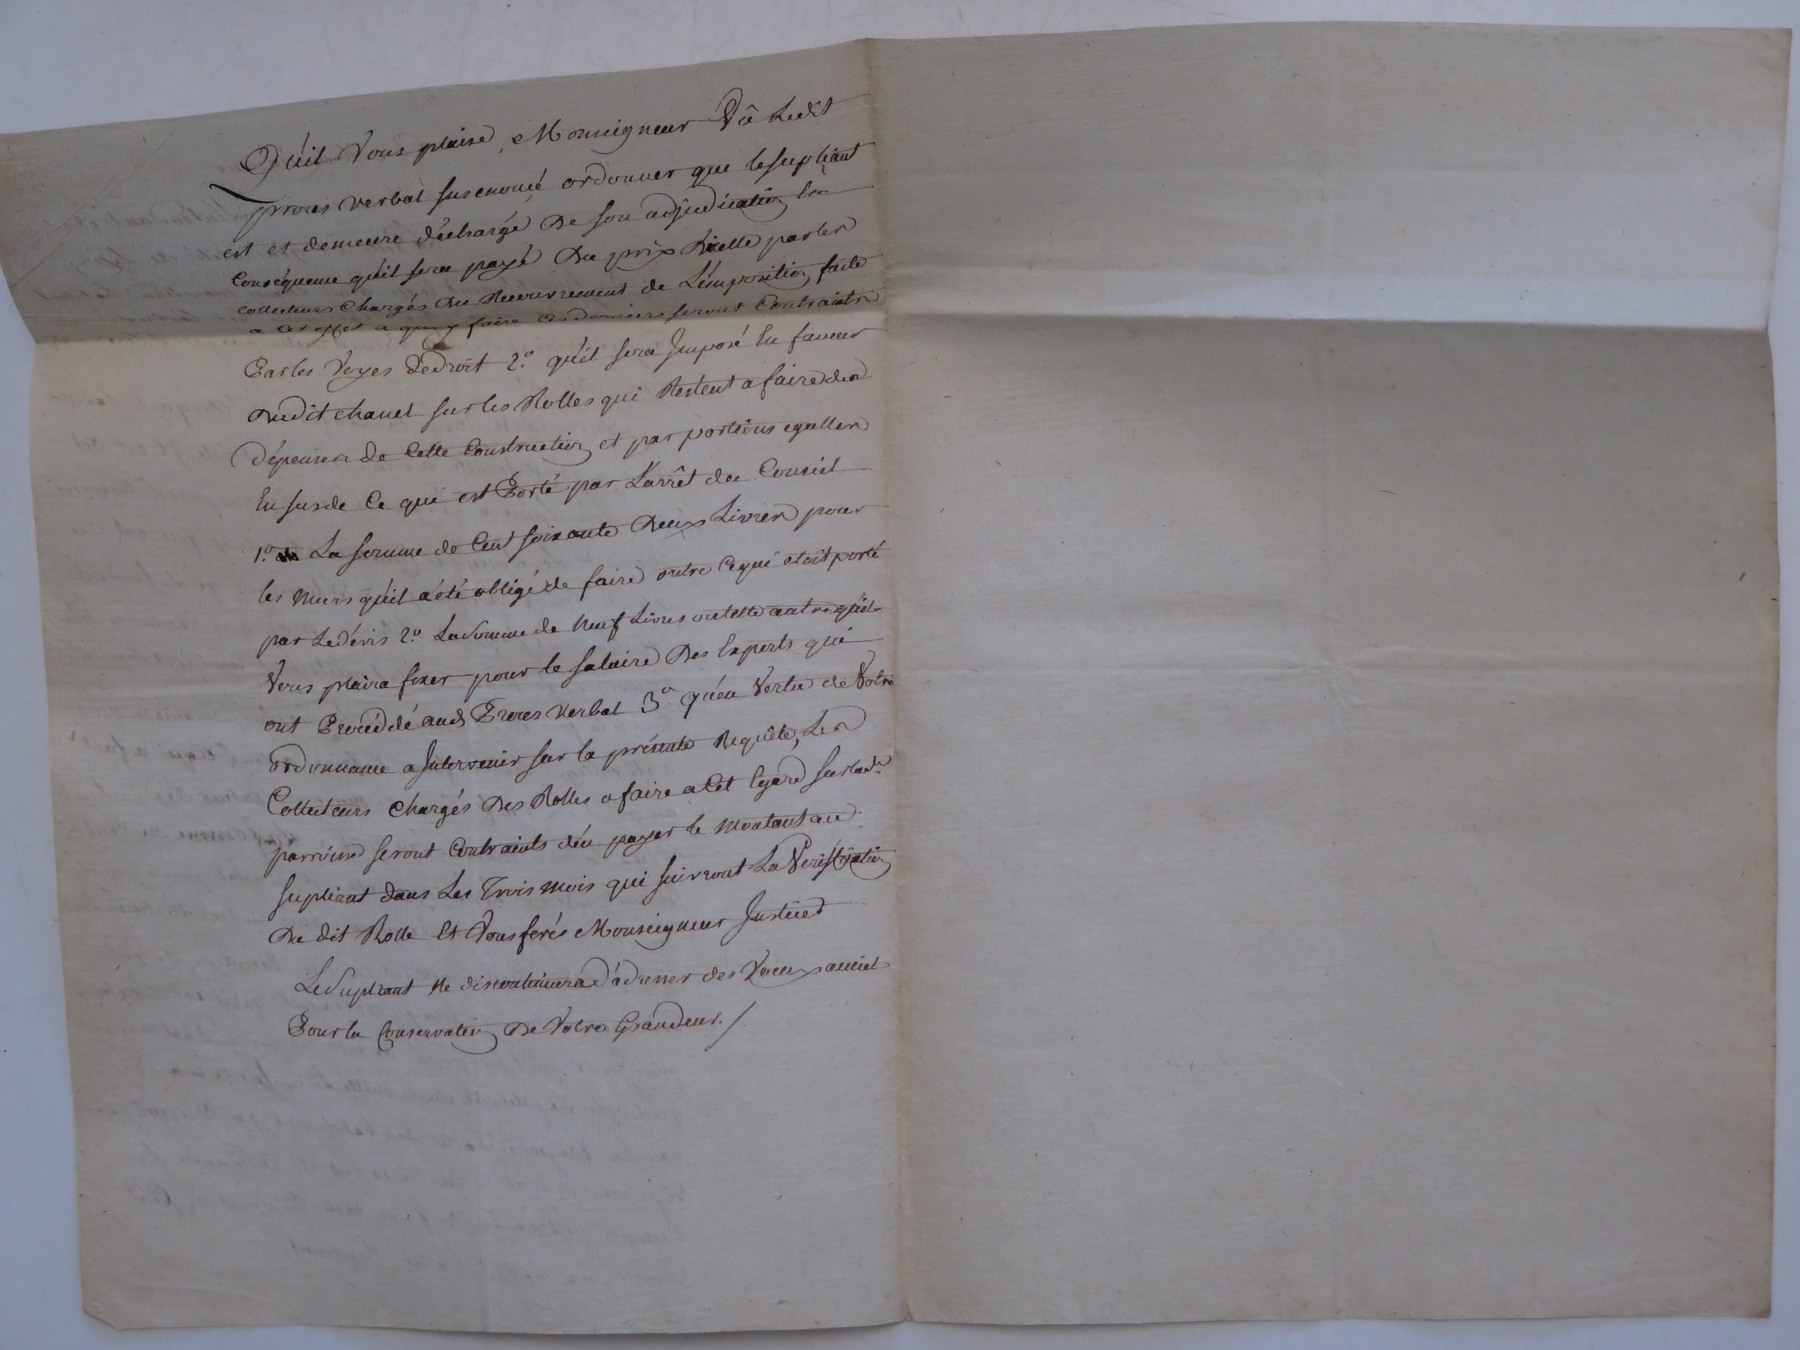 Qu'il Vous plaise, Monseigneur Vû Ledit
proces verbal susenoncé, ordonner que le supliant
est et demeure déchargé de son adjudication en
Conséquence qu'il sera payé du prix d'icelle par les
collecteurs chargés du Recouvrement de L'imposition faite
a cet effet a quoy faire ces derniers seront Contraints
Par les Voyes de droit 2.° qu'il sera Imposé En faveur
dudit chauel sur les Rolles qui Restent a faire des
dépenses de Cette Construction et par portions egalles
En sus de Ce qui est Porté par L'arrêt du Conseil
1.° La somme de Cent soixante deux Livres pour
les murs qu'il a été obligé de faire outre Ce qui etoit porté
par Le dévis 2.° La somme de Neuf Livres ou telle autre qu'il
Vous plaira fixer pour le salaire des Experts qui
ont Procédé aud Proces verbal 3.° qu'en Vertu de Votre
ordonnance a Intervenir sur la présente Requête, Les
Collecteurs chargés des Rolles a faire a Cet Egard sur lad.e
parroisse seront Contraints d'en payer le Montant au
supliant dans Les Trois mois qui suivront La Verification
du dit Rolle Et Vous ferés Monseigneur Justice
Le Supliant Ne discontinuera d'adresser des Vœux au ciel
Pour la Conservation de Votre Grandeur. /